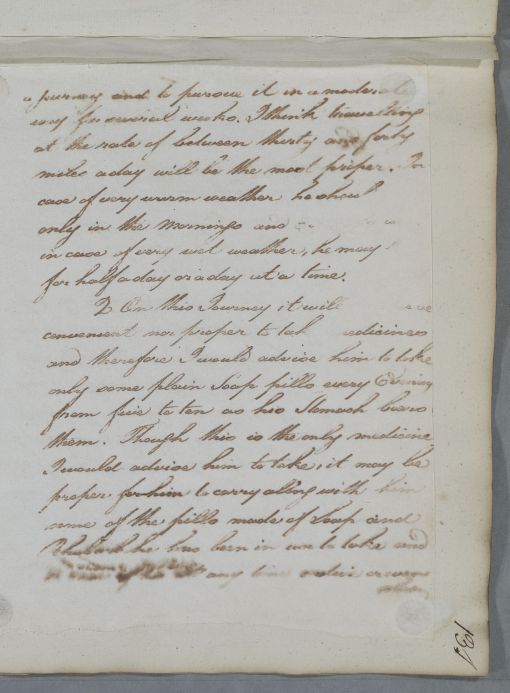 a journey and to pursue it in a moderate
way for several weeks. I think travelling
at the rate of between thirty and forty
miles a day will be the most proper. In
case of very warm weather he shoul
only in the mornings and
in case of very wet weather, he may
for half a day or a day at a time.
2 On this Journey it will
convenient nor proper to tak edicines
and therefore I would advise him to take
only some plain Soap pills every Evening
from five to ten as his Stomach bears
them. Though this is the only medicine
I would advise him to take, it may be
proper for him to carry along with him
some of the pills made of Soap and
Rhubarb he has been in use to take and
any time